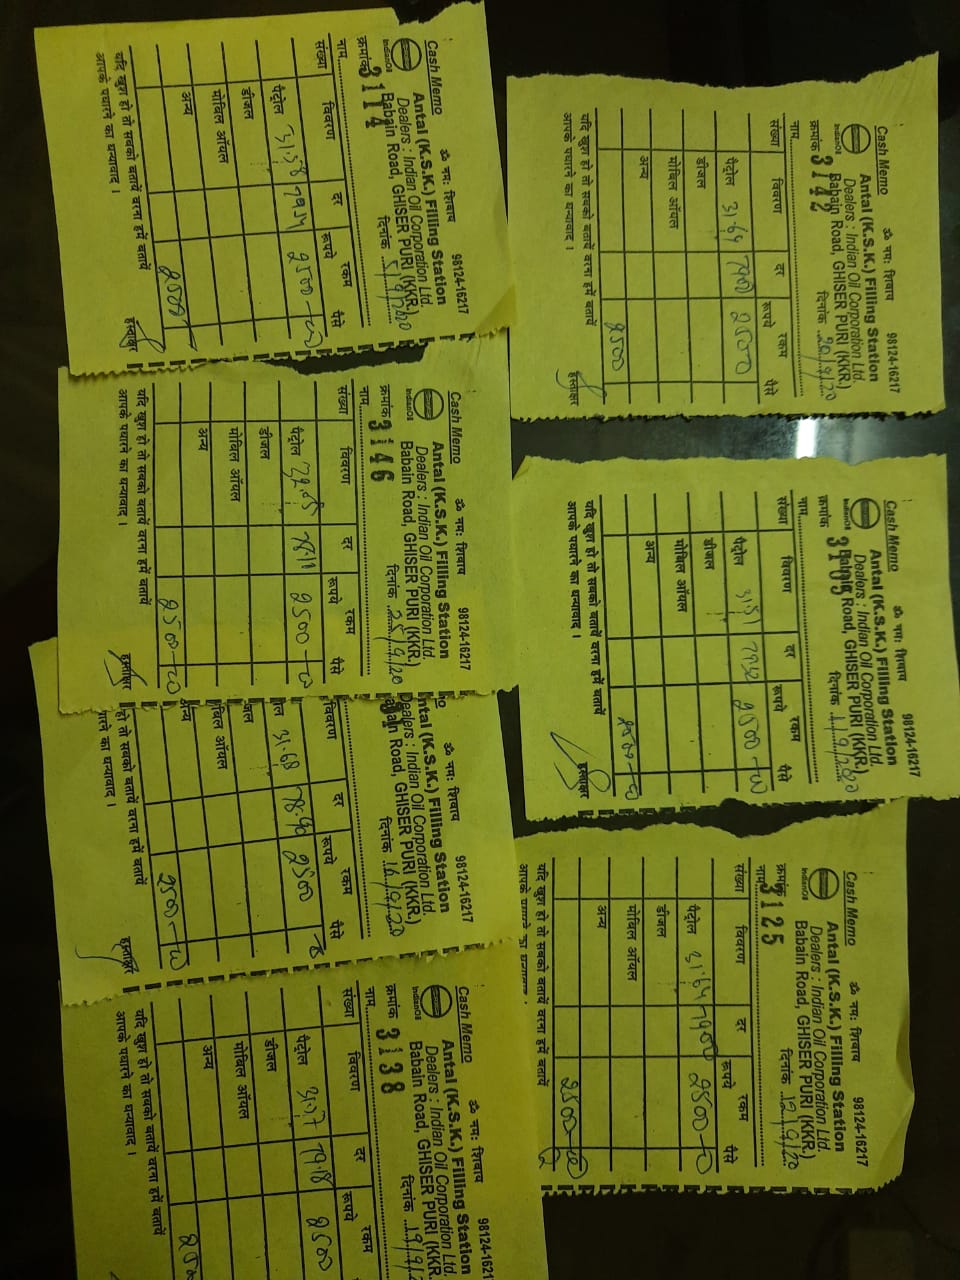 ॐ नमः शिवाय
Cash Memo 98124-16217
Antal (K.S.K.) Filling Station
Dealers : Indian Oil Corporation Ltd.
Babain Road, GHISER PURI (KKR.)
IndianOil
क्रमांक 3114 दिनांक 5/9/2020
नाम
संख्या विवरण दर रकम
रूपये पैसे
पैट्रोल 31.58 7954 2500
डीजल
मोबिल ऑयल
अन्य
2500
यदि खुश हो तो सबको बतायें वरना हमें बतायें
आपके पधारने का धन्यवाद । हस्ताक्षर
ॐ नमः शिवाय
Cash Memo 98124-16217
Antal (K.S.K.) Filling Station
Dealers : Indian Oil Corporation Ltd.
Babain Road, GHISER PURI (KKR.)
IndianOil
क्रमांक 3142 दिनांक 20/9/20
नाम
संख्या विवरण दर रकम
रूपये पैसे
पैट्रोल 31.64 7900 2500
डीजल
मोबिल ऑयल
अन्य
2500
यदि खुश हो तो सबको बतायें वरना हमें बतायें
आपके पधारने का धन्यवाद । हस्ताक्षर
ॐ नमः शिवाय
Cash Memo 98124-16217
Antal (K.S.K.) Filling Station
Dealers : Indian Oil Corporation Ltd.
Babain Road, GHISER PURI (KKR.)
IndianOil
क्रमांक 3146 दिनांक 25/9/20
नाम
संख्या विवरण दर रकम
रूपये पैसे
पैट्रोल 2500
डीजल
मोबिल ऑयल
अन्य
2500
यदि खुश हो तो सबको बतायें वरना हमें बतायें
आपके पधारने का धन्यवाद । हस्ताक्षर
ॐ नमः शिवाय
Cash Memo 98124-16217
Antal (K.S.K.) Filling Station
Dealers : Indian Oil Corporation Ltd.
Babain Road, GHISER PURI (KKR.)
क्रमांक 3105 दिनांक 1/9/2020
नाम
संख्या विवरण दर रकम
रूपये पैसे
पैट्रोल 2500
डीजल
मोबिल ऑयल
अन्य
2500
यदि खुश हो तो सबको बतायें वरना हमें बतायें
आपके पधारने का धन्यवाद । हस्ताक्षर
ॐ नमः शिवाय
mo 98124-16217
ntal (K.S.K.) Filling Station
Dealers : Indian Oil Corporation Ltd.
abain Road, GHISER PURI (KKR.)
दिनांक 16/9/20
विवरण दर रकम
रूपये पैसे
ोल 31.68 78.90 2500
जल
ोबिल ऑयल
न्य
2500
हो तो सबको बतायें वरना हमें बतायें
ारने का धन्यवाद । हस्ताक्षर
ॐ नमः शिवाय
Cash Memo 98124-16217
Antal (K.S.K.) Filling Station
Dealers : Indian Oil Corporation Ltd.
Babain Road, GHISER PURI (KKR.)
IndianOil
क्रमांक 3125 दिनांक 12/9/20
नाम
संख्या विवरण दर रकम
रूपये पैसे
पैट्रोल 31.64 7900 2500
डीजल
मोबिल ऑयल
अन्य
2500
यदि खुश हो तो सबको बतायें वरना हमें बतायें
ॐ नमः शिवाय
Cash Memo 98124-1621
Antal (K.S.K.) Filling Station
Dealers : Indian Oil Corporation Ltd.
Babain Road, GHISER PURI (KKR.
IndianOil
क्रमांक 3138 दिनांक 19/9/2
नाम
संख्या विवरण दर रकम
रूपये
पैट्रोल 79.18 2500
डीजल
मोबिल ऑयल
अन्य
250
यदि खुश हो तो सबको बतायें वरना हमें बतायें
आपके पधारने का धन्यवाद ।